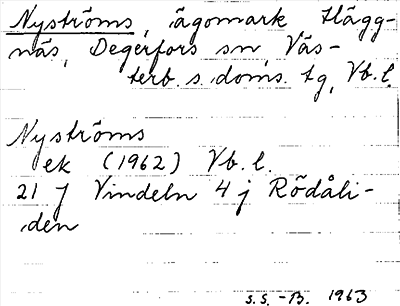 Nyströms, ägomark Hägg-
näs, Degerfors sn, Väs-
terb. s. doms. tg, Vb. l.
Nyströms
ek (1962) Vb. l.
21 J Vindeln 4 j Rödåli-
den
S.S.-B. 1963